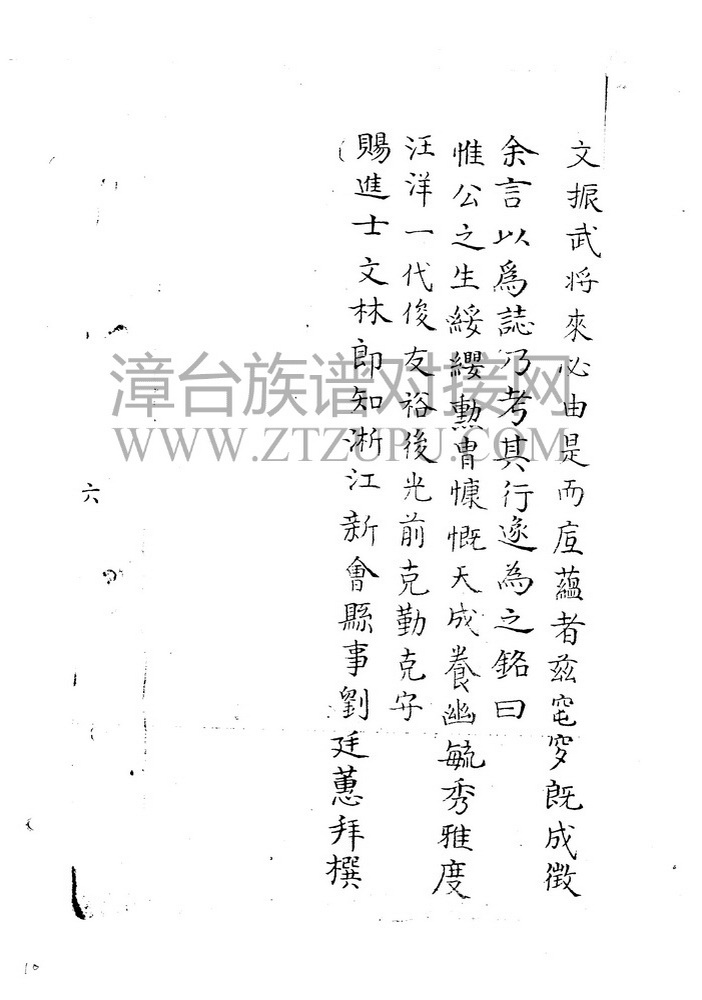 文振武将來必由是而庢蘊者茲窀穸既成徵
余言以為誌乃考其行遂為之銘曰
惟公之生綏纓勲胄慷慨天成養幽毓秀雅度
汪洋一代俊友裕後光前克勤克守
賜進士文林郎知淅江新會縣事劉廷蕙拜撰
六
漳台族谱对接网
WWW.ZTZUPU.COM
10